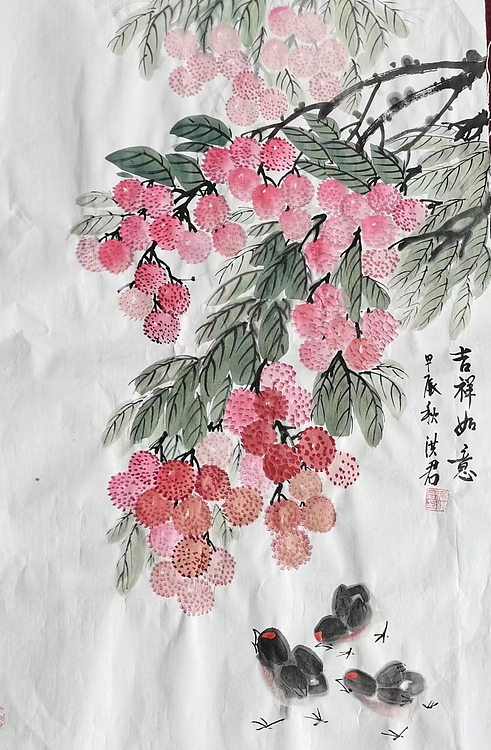 吉祥如意
甲辰秋洪君